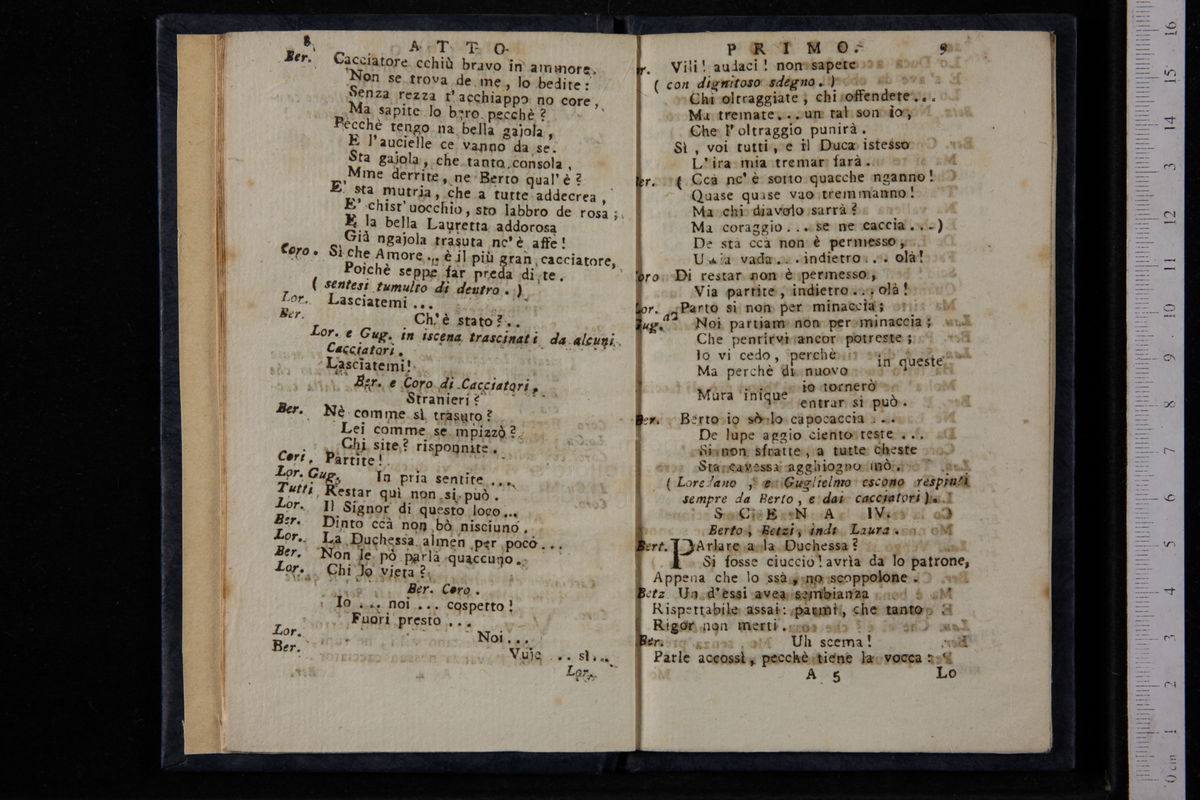 8 ATTO
Ber. Cacciatore cchiù bravo in ammore,
Non se trova de me, lo bedite:
Senza rezza t'acchiappo no core,
Ma sapite lo bero pecchè?
Pecchè tengo na bella gajola,
E l'aucielle ce vanno da se.
Sta gajola, che tanto consola,
Mme derrite, ne Berto qual'è?
E' sta mutria, che a tutte addecrea,
E' chist'uocchio, sto labbro de rosa;
E la bella Lauretta addorosa
Già ngajola trasuta nc'è affe!
Coro. Sì che Amore... è il più gran cacciatore,
Poichè seppe far preda di te.
( sentesi tumulto di dentro. )
Lor. Lasciatemi ...
Ber. Ch'è stato?..
Lor. e Gug. in iscena trascinati da alcuni
Cacciatori.
Lasciatemi!
Ber. e Coro di Cacciatori,
Stranieri?
Ber. Nè comme sì trasuto?
Lei comme se mpizzò?
Chi site? risponnite.
Cori. Partite!
Lor. Gug. In pria sentite ...
Tutti Restar quì non si può.
Lor. Il Signor di questo loco...
Ber. Dinto ccà non bò nisciuno.
Lor. La Duchessa almen per poco...
Ber. Non le pò parlà quaccuno.
Lor. Chi lo vieta?
Ber. Coro.
Io ... noi ... cospetto!
Fuori presto ...
Lor. Noi...
Ber. Vuje ... sì...
Lor.
PRIMO. 9
r. Vili! audaci! non sapete
( con dignitoso sdegno. )
Chi oltraggiate, chi offendete...
Ma tremate... un tal son io,
Che l'oltraggio punirà.
Sì, voi tutti, e il Duca istesso
L'ira mia tremar farà.
er. ( Ccà nc'è sotto quacche nganno!
Quase quase vao tremmanno!
Ma chi diavolo sarrà?
Ma coraggio... se ne caccia...)
De sta ccà non è permesso,
Uscia vada... indietro... olà!
oro Di restar non è permesso,
Via partite, indietro... olà!
Lor. a2 Parto sì non per minaccia;
Gug. Noi partiam non per minaccia;
Che pentirvi ancor potreste;
Io vi cedo, perchè
Ma perchè di nuovo in queste
Mura inique io tornerò
entrar si può.
Ber. Berto io sò lo capocaccia ...
De lupe aggio ciento teste ...
Si non sfratte, a tutte cheste
Sta cavessa agghiogno mò.
( Loredano, e Guglielmo escono respinti
sempre da Berto, e dai cacciatori ).
SCENA IV.
Berto, Betzi, indi Laura.
Bert. PArlare a la Duchessa?
Si fosse ciuccio! avrìa da lo patrone,
Appena che lo ssà, no scoppolone.
Betz Un d'essi avea sembianza
Rispettabile assai: parmi, che tanto
Rigor non merti.
Ber. Uh scema!
Parle accossì, pecchè tiene la vocca:
A 5 Lo
16
15
14
13
12
11
10
9
8
7
6
5
4
3
2
1
0 cm